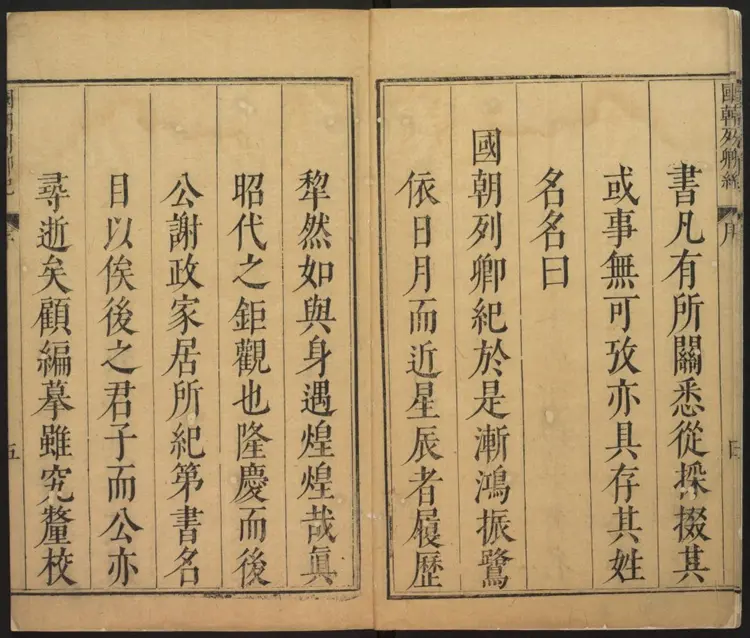 國朝列卿紀
序
書凡有所關悉從採掇其
或事無可攷亦具存其姓
名名曰
國朝列卿紀於是漸鴻振鷺
依日月而近星辰者履歷
犂然如與身遇煌煌哉眞
昭代之鉅觀也隆慶而後
公謝政家居所紀第書名
目以俟後之君子而公亦
尋逝矣顧編摹雖究釐校
五